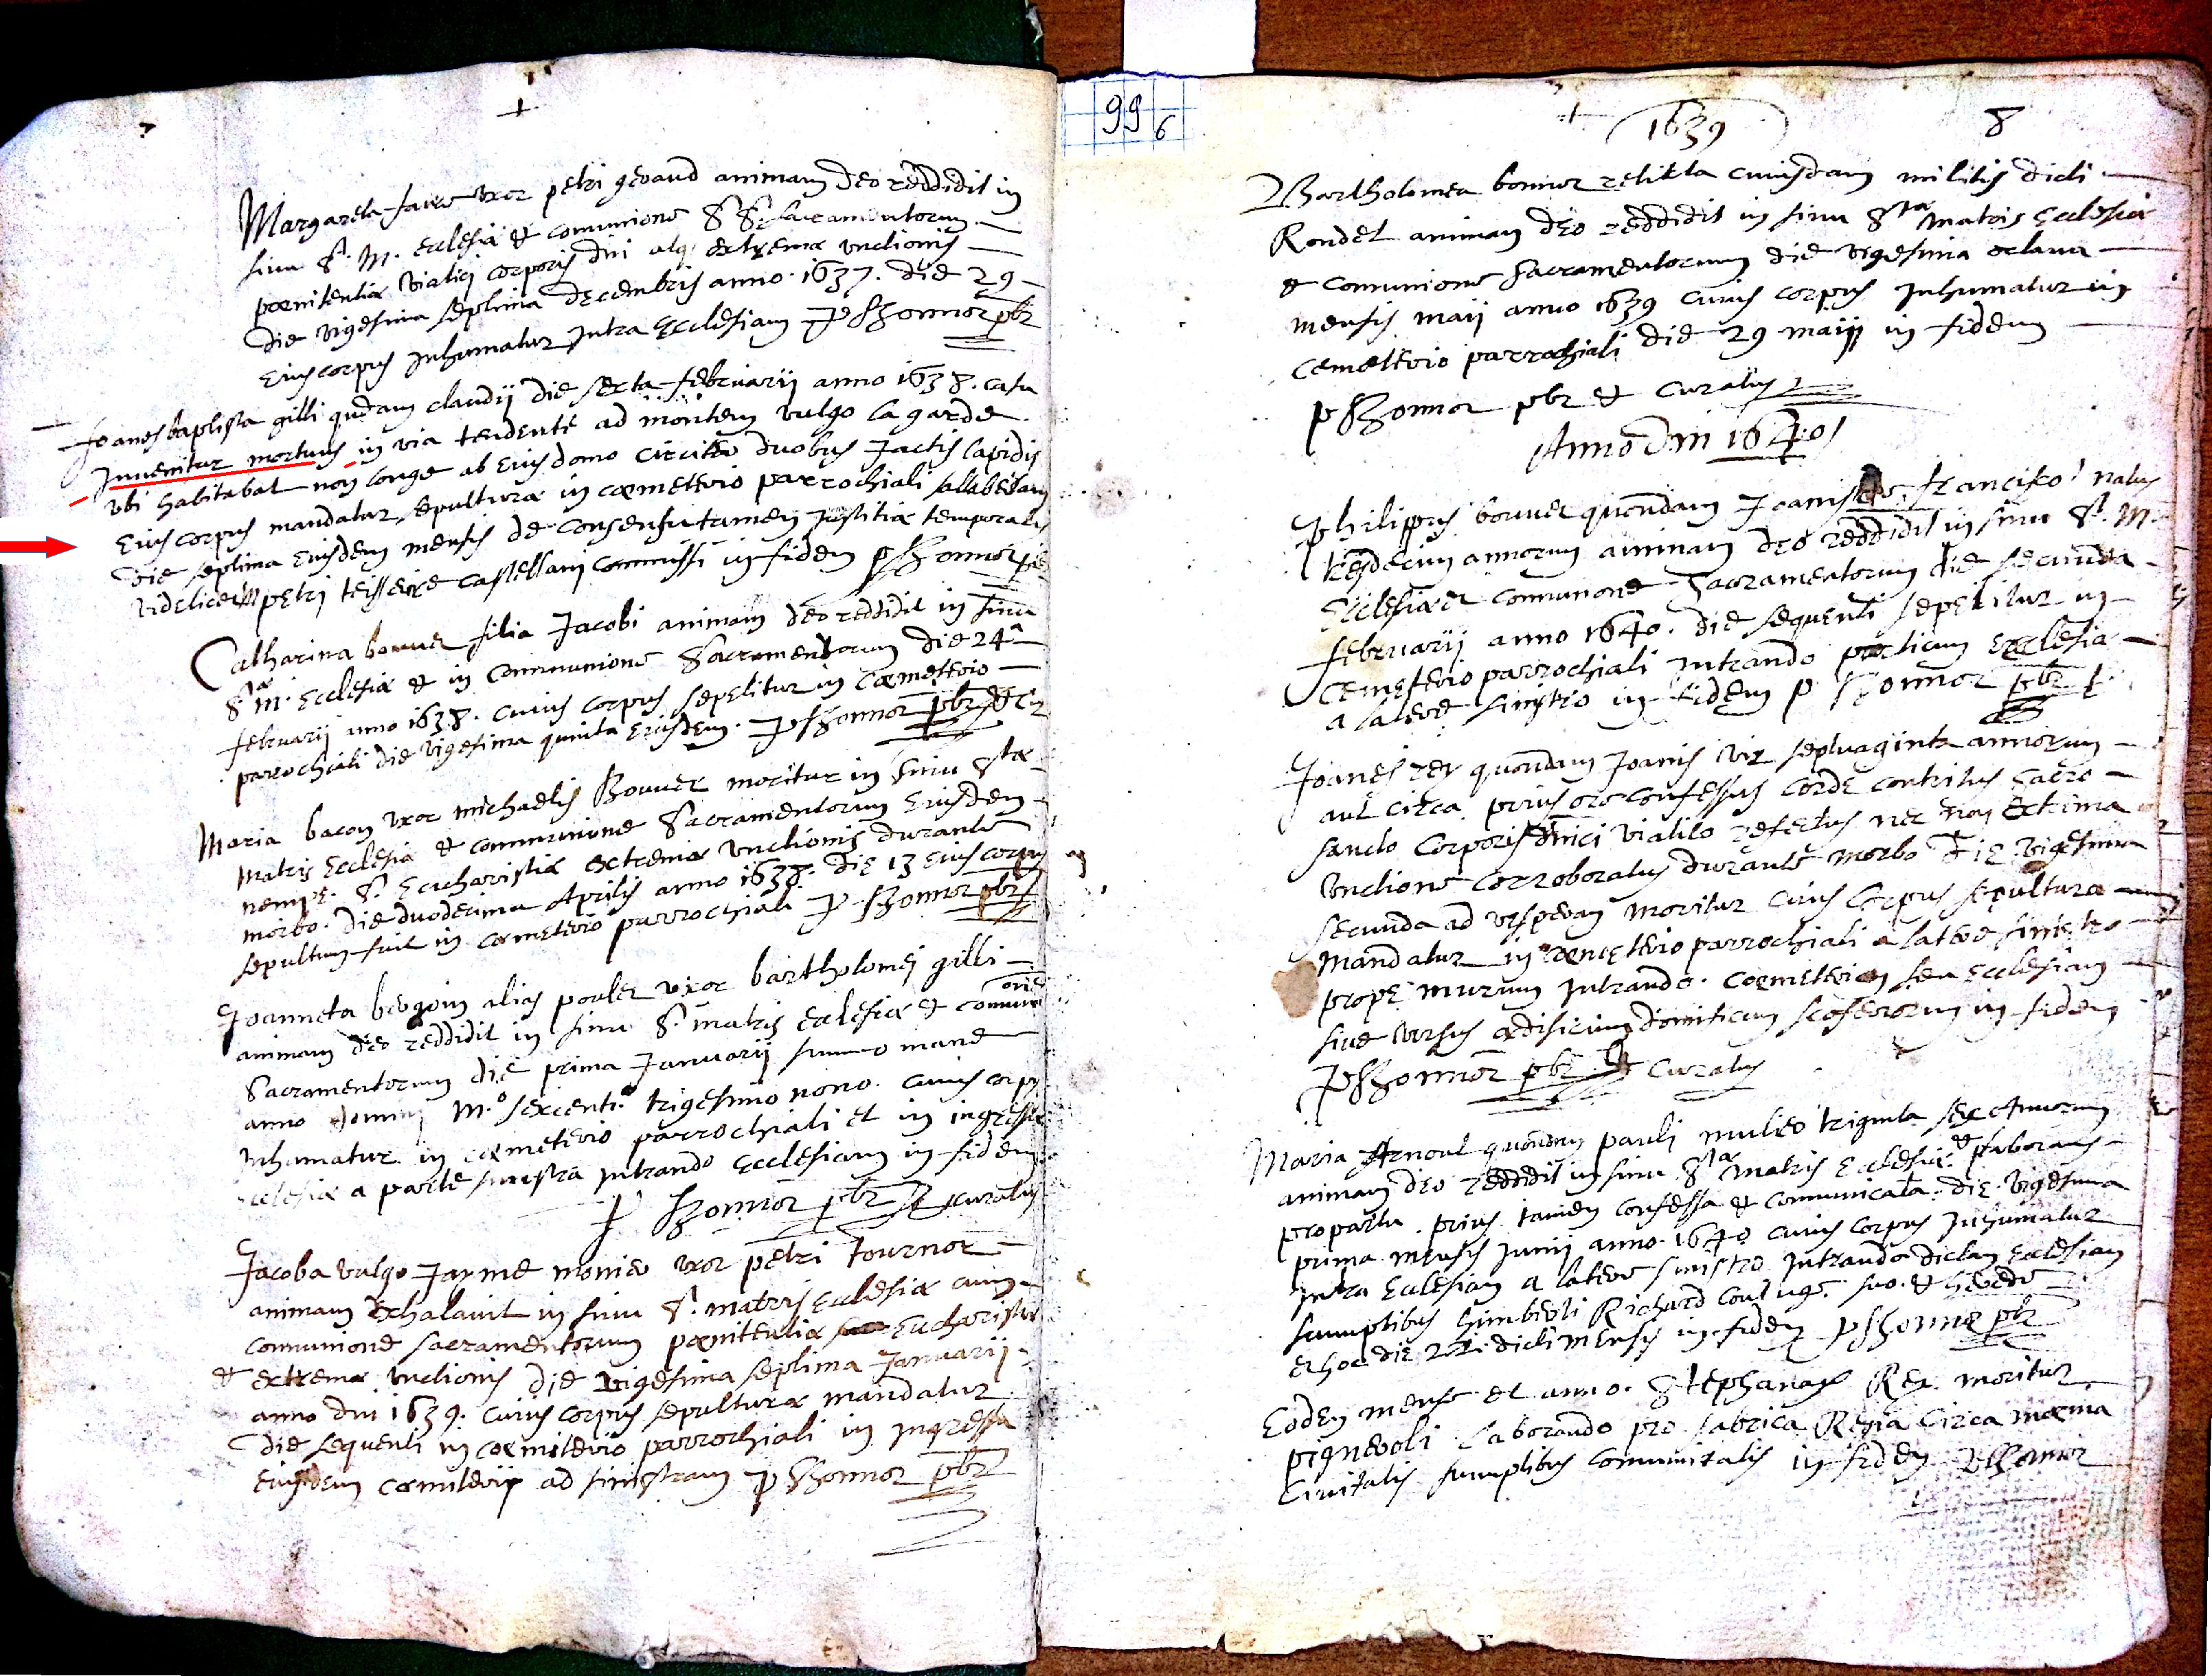 Margareta faure uxor petri geraud animam deo reddidit in
sinu S. M. Ecclesiæ et comunione SS. sacramentorum
pœnitentiæ viatici corporis dni atq; extremæ unctionis
die vigesima septima decembris anno 1637. die 29
Eius corpus Inhumatur Intra Ecclesiam P pbr
Joanes baptista gilli qudam claudij die sexta februarij anno 1638. casu
Invenitur mortuus in via tendente ad montem vulgo la garde
ubi habitabat non longe ab Eius domo circiter duobus Jactis lapidis
Eius corpus mandatur sepulturæ in cœmeterio parrochiali
die septima Eiusdem mensis de consensu tamen Justitiæ temporalis
videlicet petri teisseire castellani commissi in fidem P
Catharina bouuer filia Jacobi animam deo reddidit in sinu
Stæ M. Ecclesiæ et in communione Sacramentorum die 24a
februarij anno 1638. cuius corpus sepelitur in Cœmeterio
parrochiali die vigesima quinta Eiusdem. P pbr et cur
Maria bacon uxor michaelis Bouuer moritur in sinu Stæ
Matris Ecclesiæ et communione Sacramentorum Eiusdem
nempe S. Eucharistiæ extremæ unctionis durante
morbo. die duodecima Aprilis anno 1638. die 13 Eius corpus
sepultum fuit in cœmeterio parrochiali P pbr
Joanneta alias uxor bartholomei gilli
animam deo reddidit in sinu S. matris ecclesiæ et comunione
Sacramentorum die prima Januarij summo mane
anno domini M.o sexcent.o trigesimo nono. cuius corpus
Inhumatur in cœmeterio parrochiali et in ingressu
ecclesiæ a parte sinistra Intrando Ecclesiam in fidem
P pbr et curatus
Jacoba vulgo Jayme monier uxor petri tournor
animam exhalavit in sinu S. matris Ecclesiæ cum
comunione sacramentorum pœnitentiæ Eucharistiæ
et extremæ unctionis die vigesima septima Januarij
anno dni 1639. cuius corpus sepulturæ mandatur
die sequenti in cœmiterio parrochiali in Ingressu
Eiusdem cœmiterij ad sinistram P pbr
99 6
1639
8
Bartholomea bonnor relicta cuiusdam militis dicti
Rondet animam deo reddidit in sinu Stæ Matris Ecclesiæ
et comunione Sacramentorum die vigesima octava
mensis maij anno 1639 cuius corpus Inhumatur in
cemetterio parrochiali die 29 maij in fidem
P pbr et curatus
Anno Dni 1640
Philippus bouuer quondam Joanis francisco natus
tresdecim annorum animam deo reddidit in sinu S. M.
Ecclesiæ et communione Sacramentorum die secunda
februarij anno 1640. die sequenti sepelitur in
Cemeterio parrochiali Intrando porticum Ecclesiæ
a latere sinistro in fidem P pbr
Joanes rey quondam Joanis vir septuaginta annorum
aut circa prius ore confessus corde contritus sacro
sancto Corporis dnici viatico refectus nec non extrema
Unctione corroboratus durante morbo die vigesima
secunda ad vesperam moritur cuius corpus sepulturæ
Mandatur in cœmeterio parrochiali a latere sinistro
prope murum Intrando cœmeterium seu Ecclesiam
sive versus ædificium in fidem
P pbr et Curatus
Maria Arnoul quondam pauli mulier triginta sex Annorum
animam deo reddidit in sinu Stæ Matris Ecclesiæ et laborans
pro partu. prius tamen confessa et comunicata. die vigesima
prima mensis Junij anno 1640 cuius corpus Inhumatur
Intra Ecclesiam a latere sinistro Intrando dictam Ecclesiam
sumptibus himberti Richard coniuge suo et herede
et hoc die dicti mensis in fidem P pbr
Eodem mense et anno. Rey moritur
pigneroli laborando pro fabrica Regia Circa mœnia
Civitatis sumptibus Comunitatis in fidem P